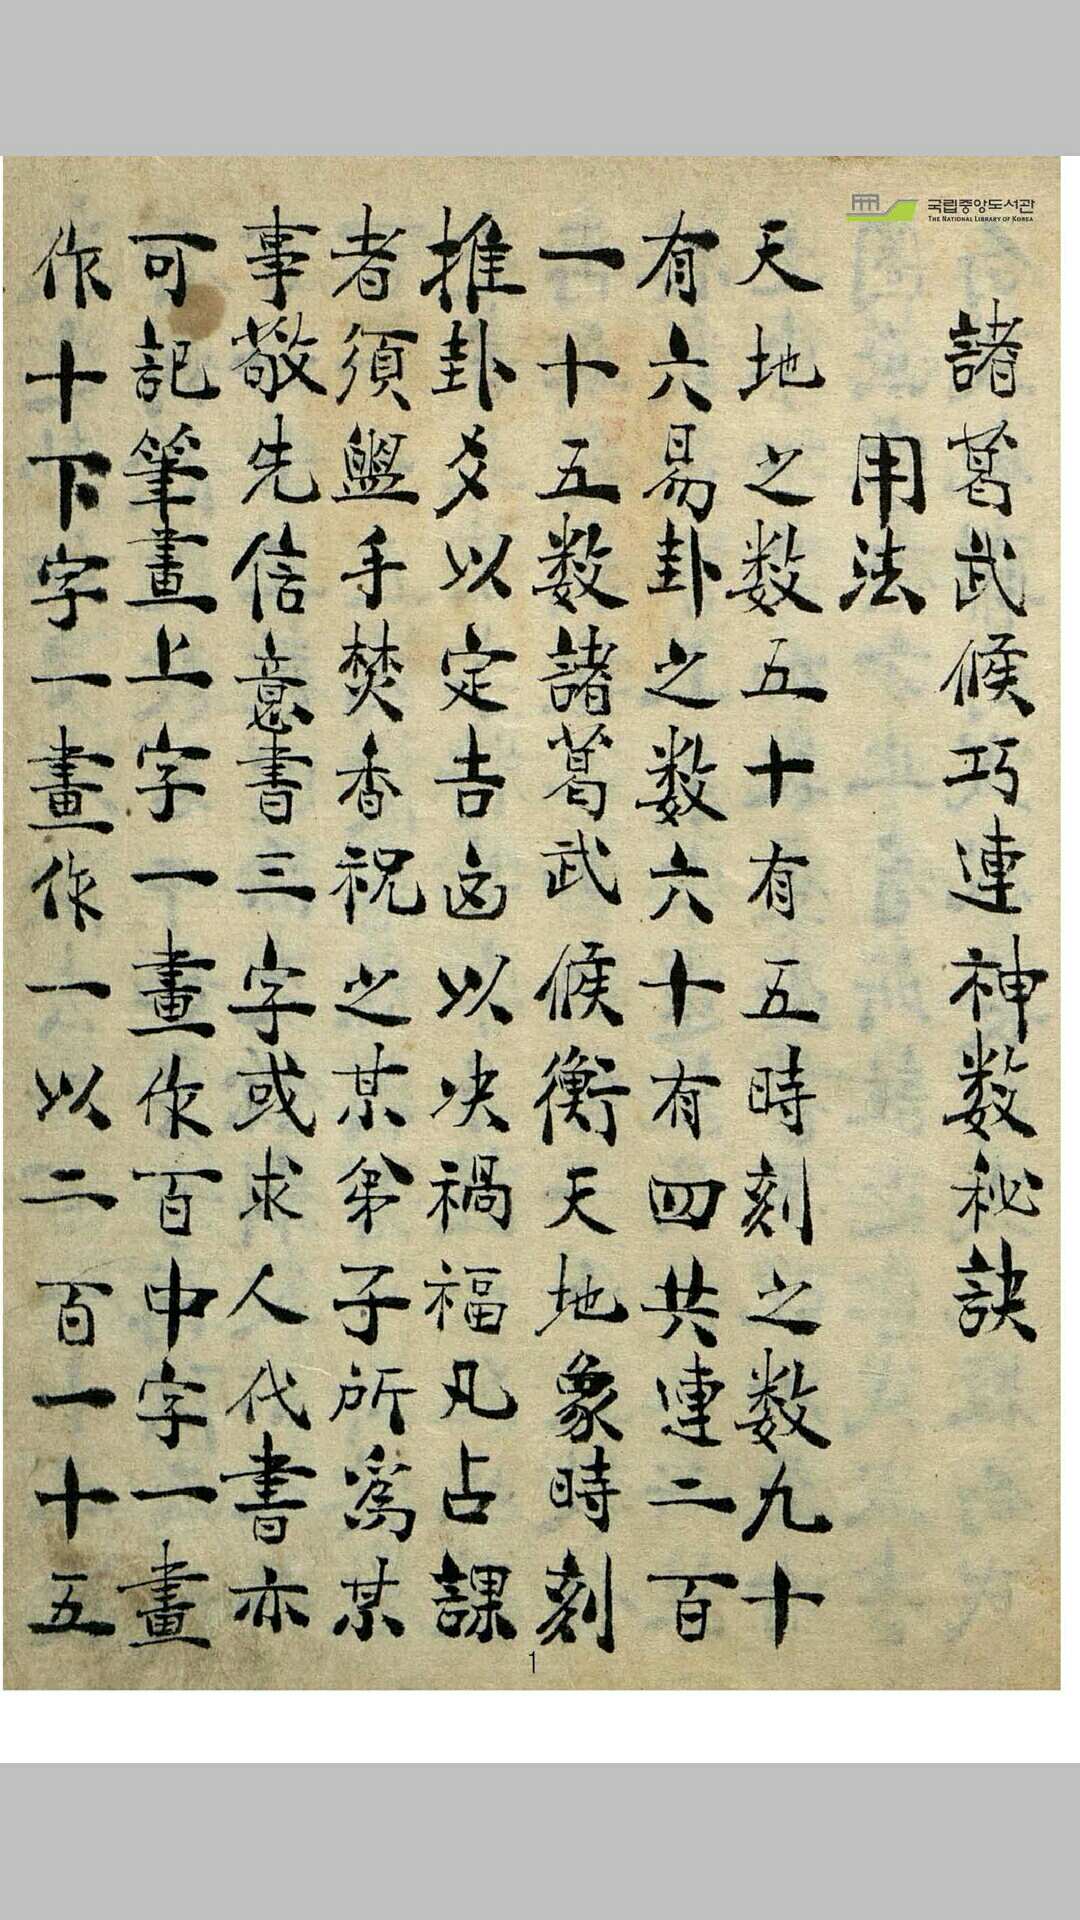 국립중앙도서관
THE NATIONAL LIBRARY OF KOREA
諸葛武候巧連神数秘訣
用法
天地之数五十有五時刻之数九十
有六易卦之数六十有四共連二百
一十五数諸葛武候衡天地象時刻
推卦爻以定吉凶以决禍福凡占課
者須盥手焚香祝之某弟子所為某
事敬先信意書三字或求人代書亦
可記筆畫上字一畫作百中字一畫
作十下字一畫作一以二百一十五
1